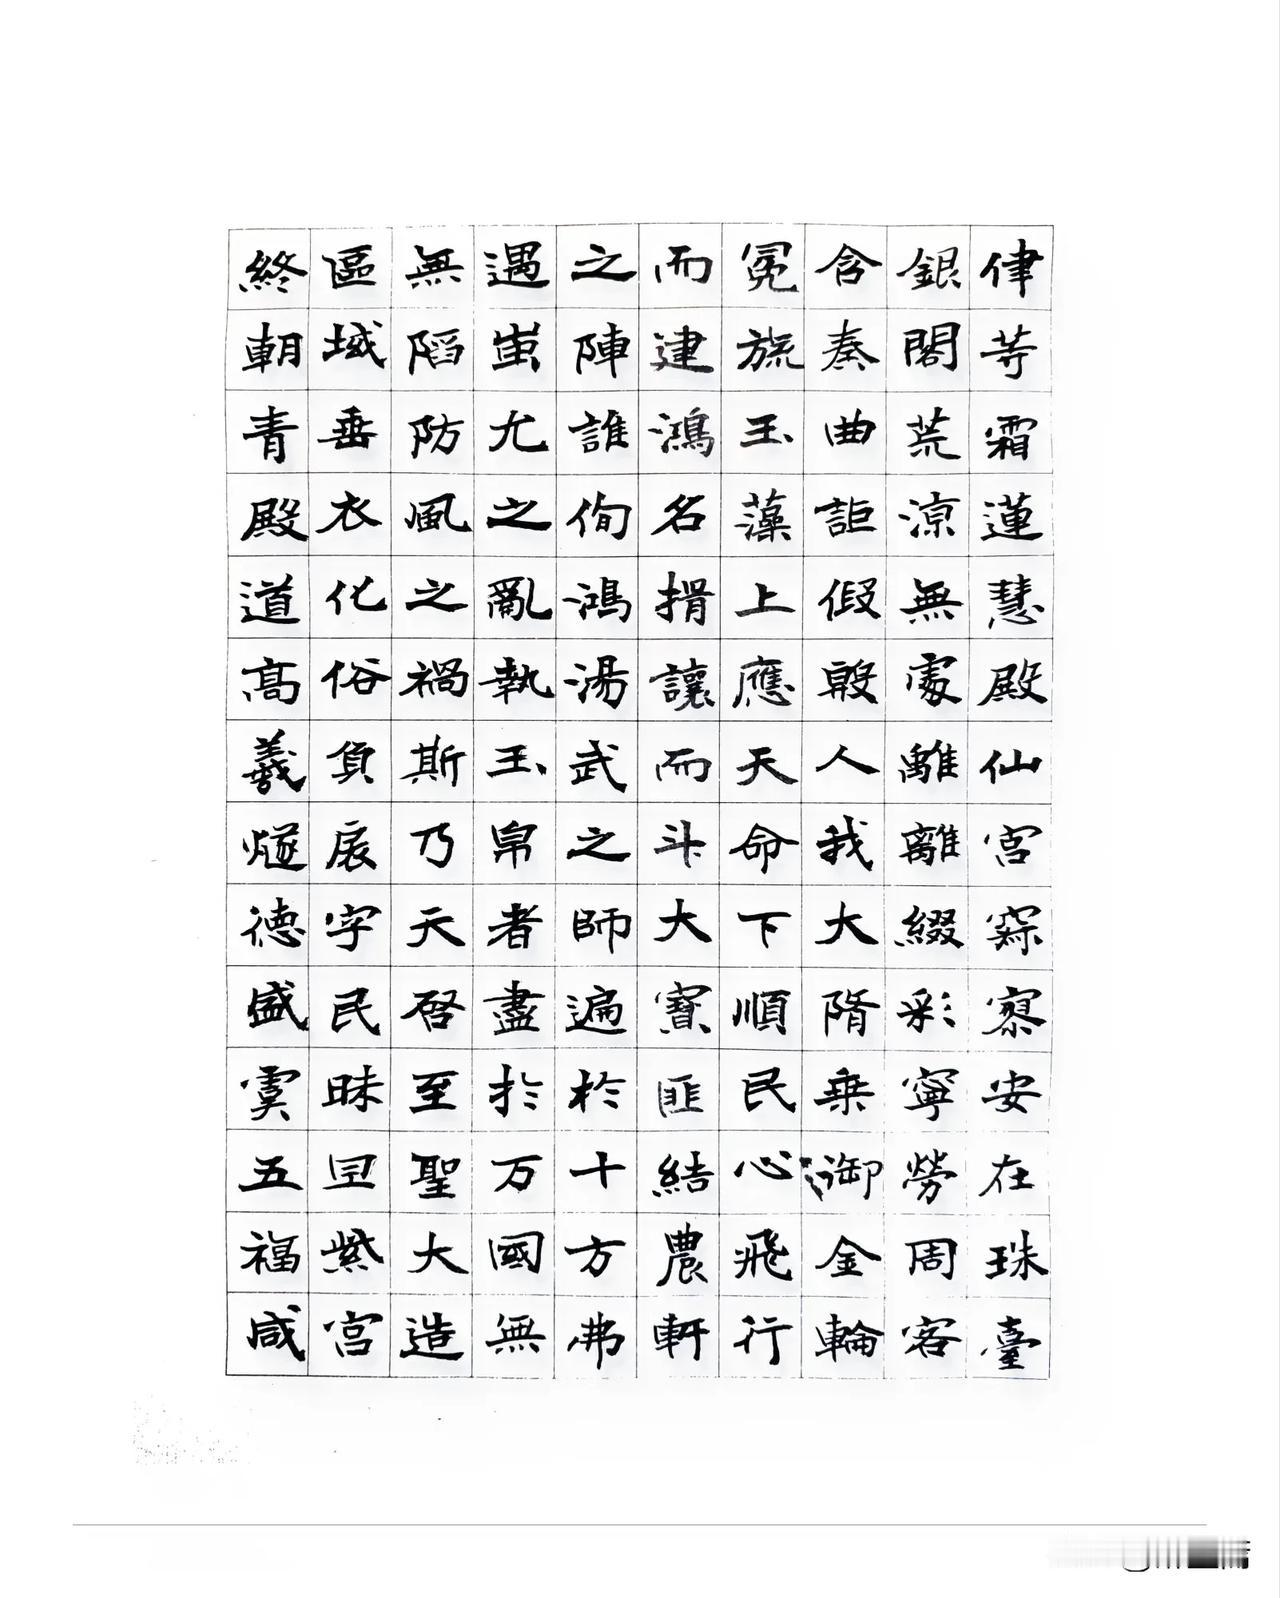 律等霜蓮慧殿仙宮寂寥安在珠臺
銀閣荒涼無處離離綴彩寧勞周客
含奏曲詎假殷人我大隋乗御金輪
冕旒玉藻上應天命下順民心飛行
而建鴻名揖讓而斗大寶匪結農軒
之陣誰侚鴻湯武之師遍扵十方弗
遇蚩尤之亂執玉帛者盡扵万國無
無陷防風之禍斯乃天啓至聖大造
區域垂衣化俗負扆字民昧旦紫宮
終朝青殿道高羲燧德盛虞五福咸